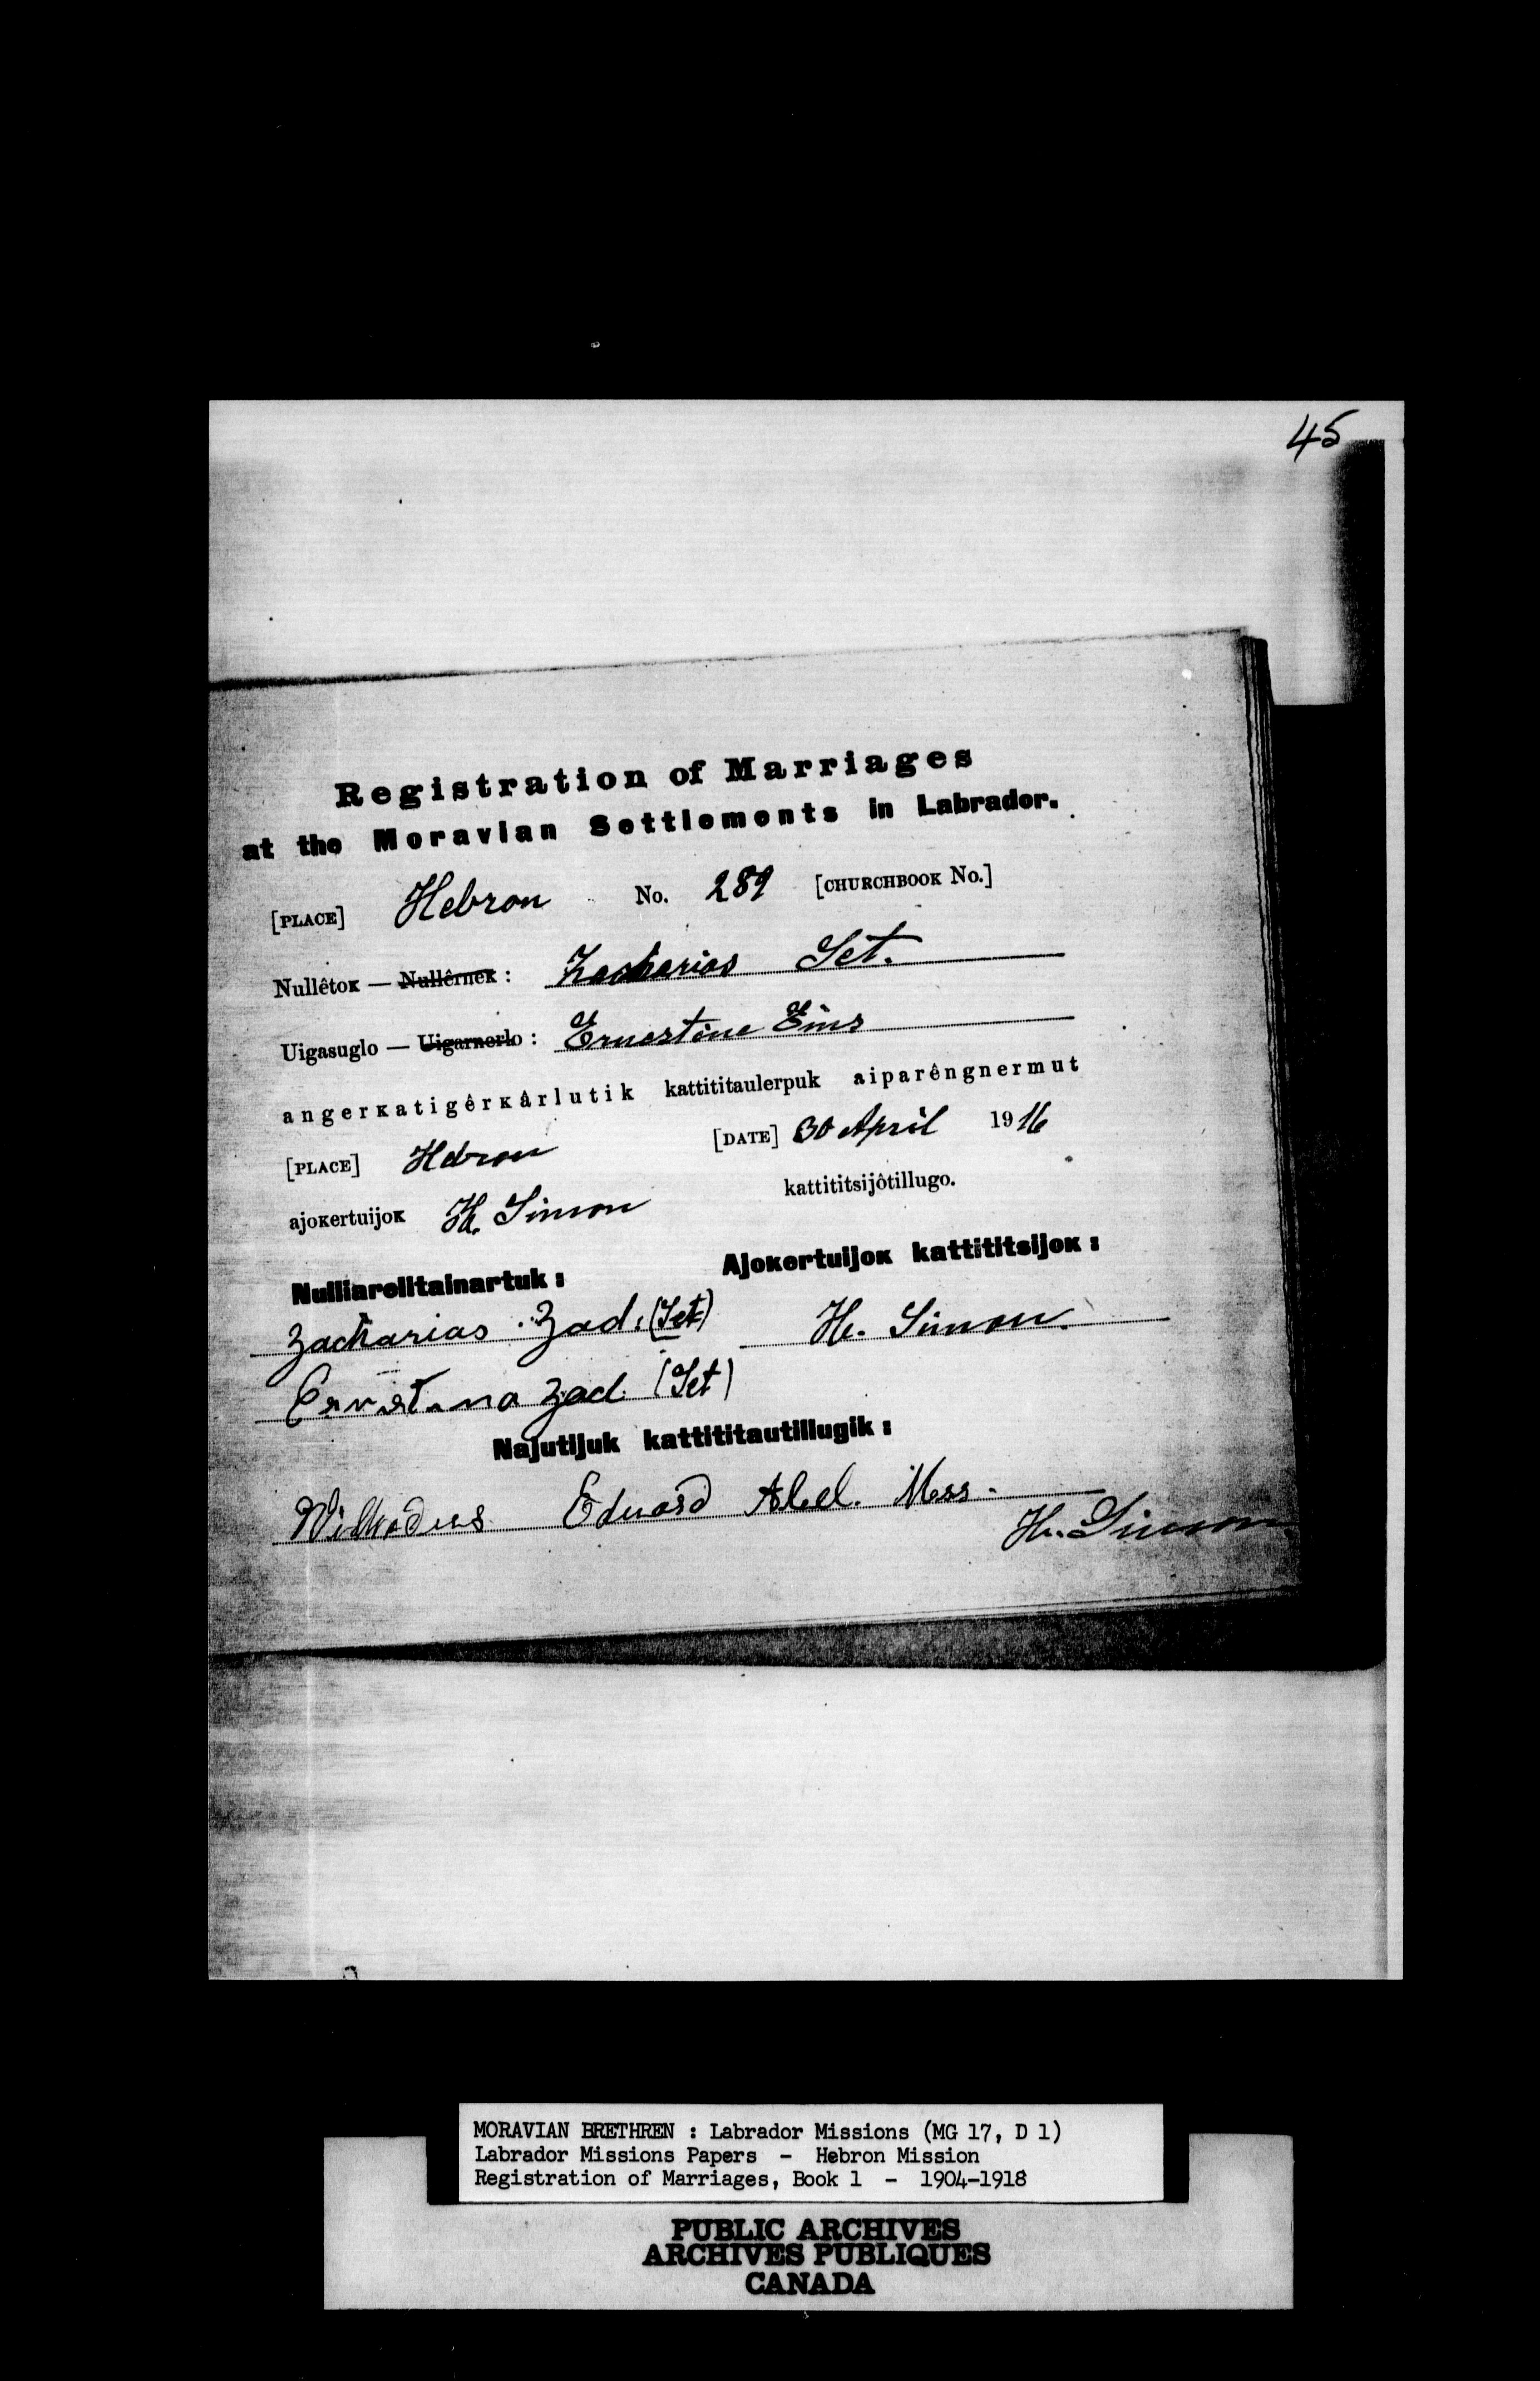 45
Registration of Marriages
at the Moravian Settlements in Labrador.
[PLACE] Hebron No. 289 [CHURCHBOOK No.]
Nullêtoĸ — Nullêrneĸ : Zacharias Set.
Uigasuglo — Uigarnerlo : Ernestine
angerĸatigêrĸârlutik kattititaulerpuk aiparêngnermut
[PLACE] Hebron [DATE] 30 April 1916
ajoĸertuijoĸ H. Simon kattititsijôtillugo.
Nulliarelitainartuk : Ajoĸertuijoĸ kattititsijoĸ :
Zacharias Zad. (Set) H. Simon.
Zad. (Set)
Najutijuk kattititautillugik :
Eduard Abel.
H. Simon.
MORAVIAN BRETHREN : Labrador Missions (MG 17, D 1)
Labrador Missions Papers - Hebron Mission
Registration of Marriages, Book 1 - 1904-1918
PUBLIC ARCHIVES
ARCHIVES PUBLIQUES
CANADA